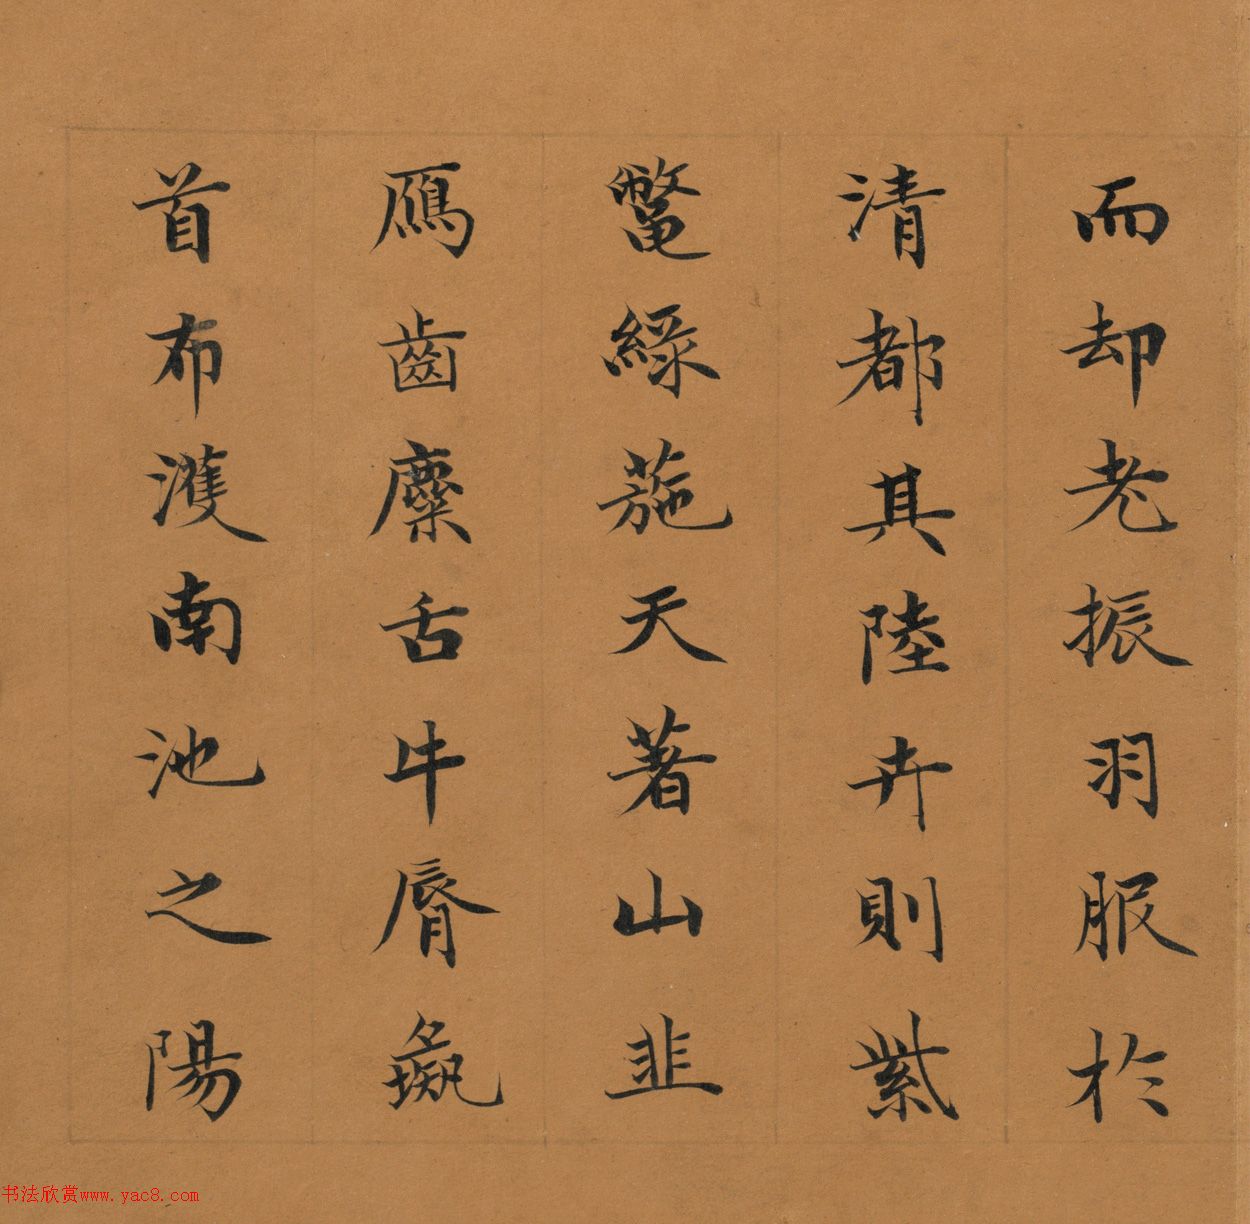 而却老振羽服於
清都其陸卉則紫
虌綠葹天著山韭
鴈齒麋舌牛脣彘
首布濩南池之陽
书法欣赏www.yac8.com